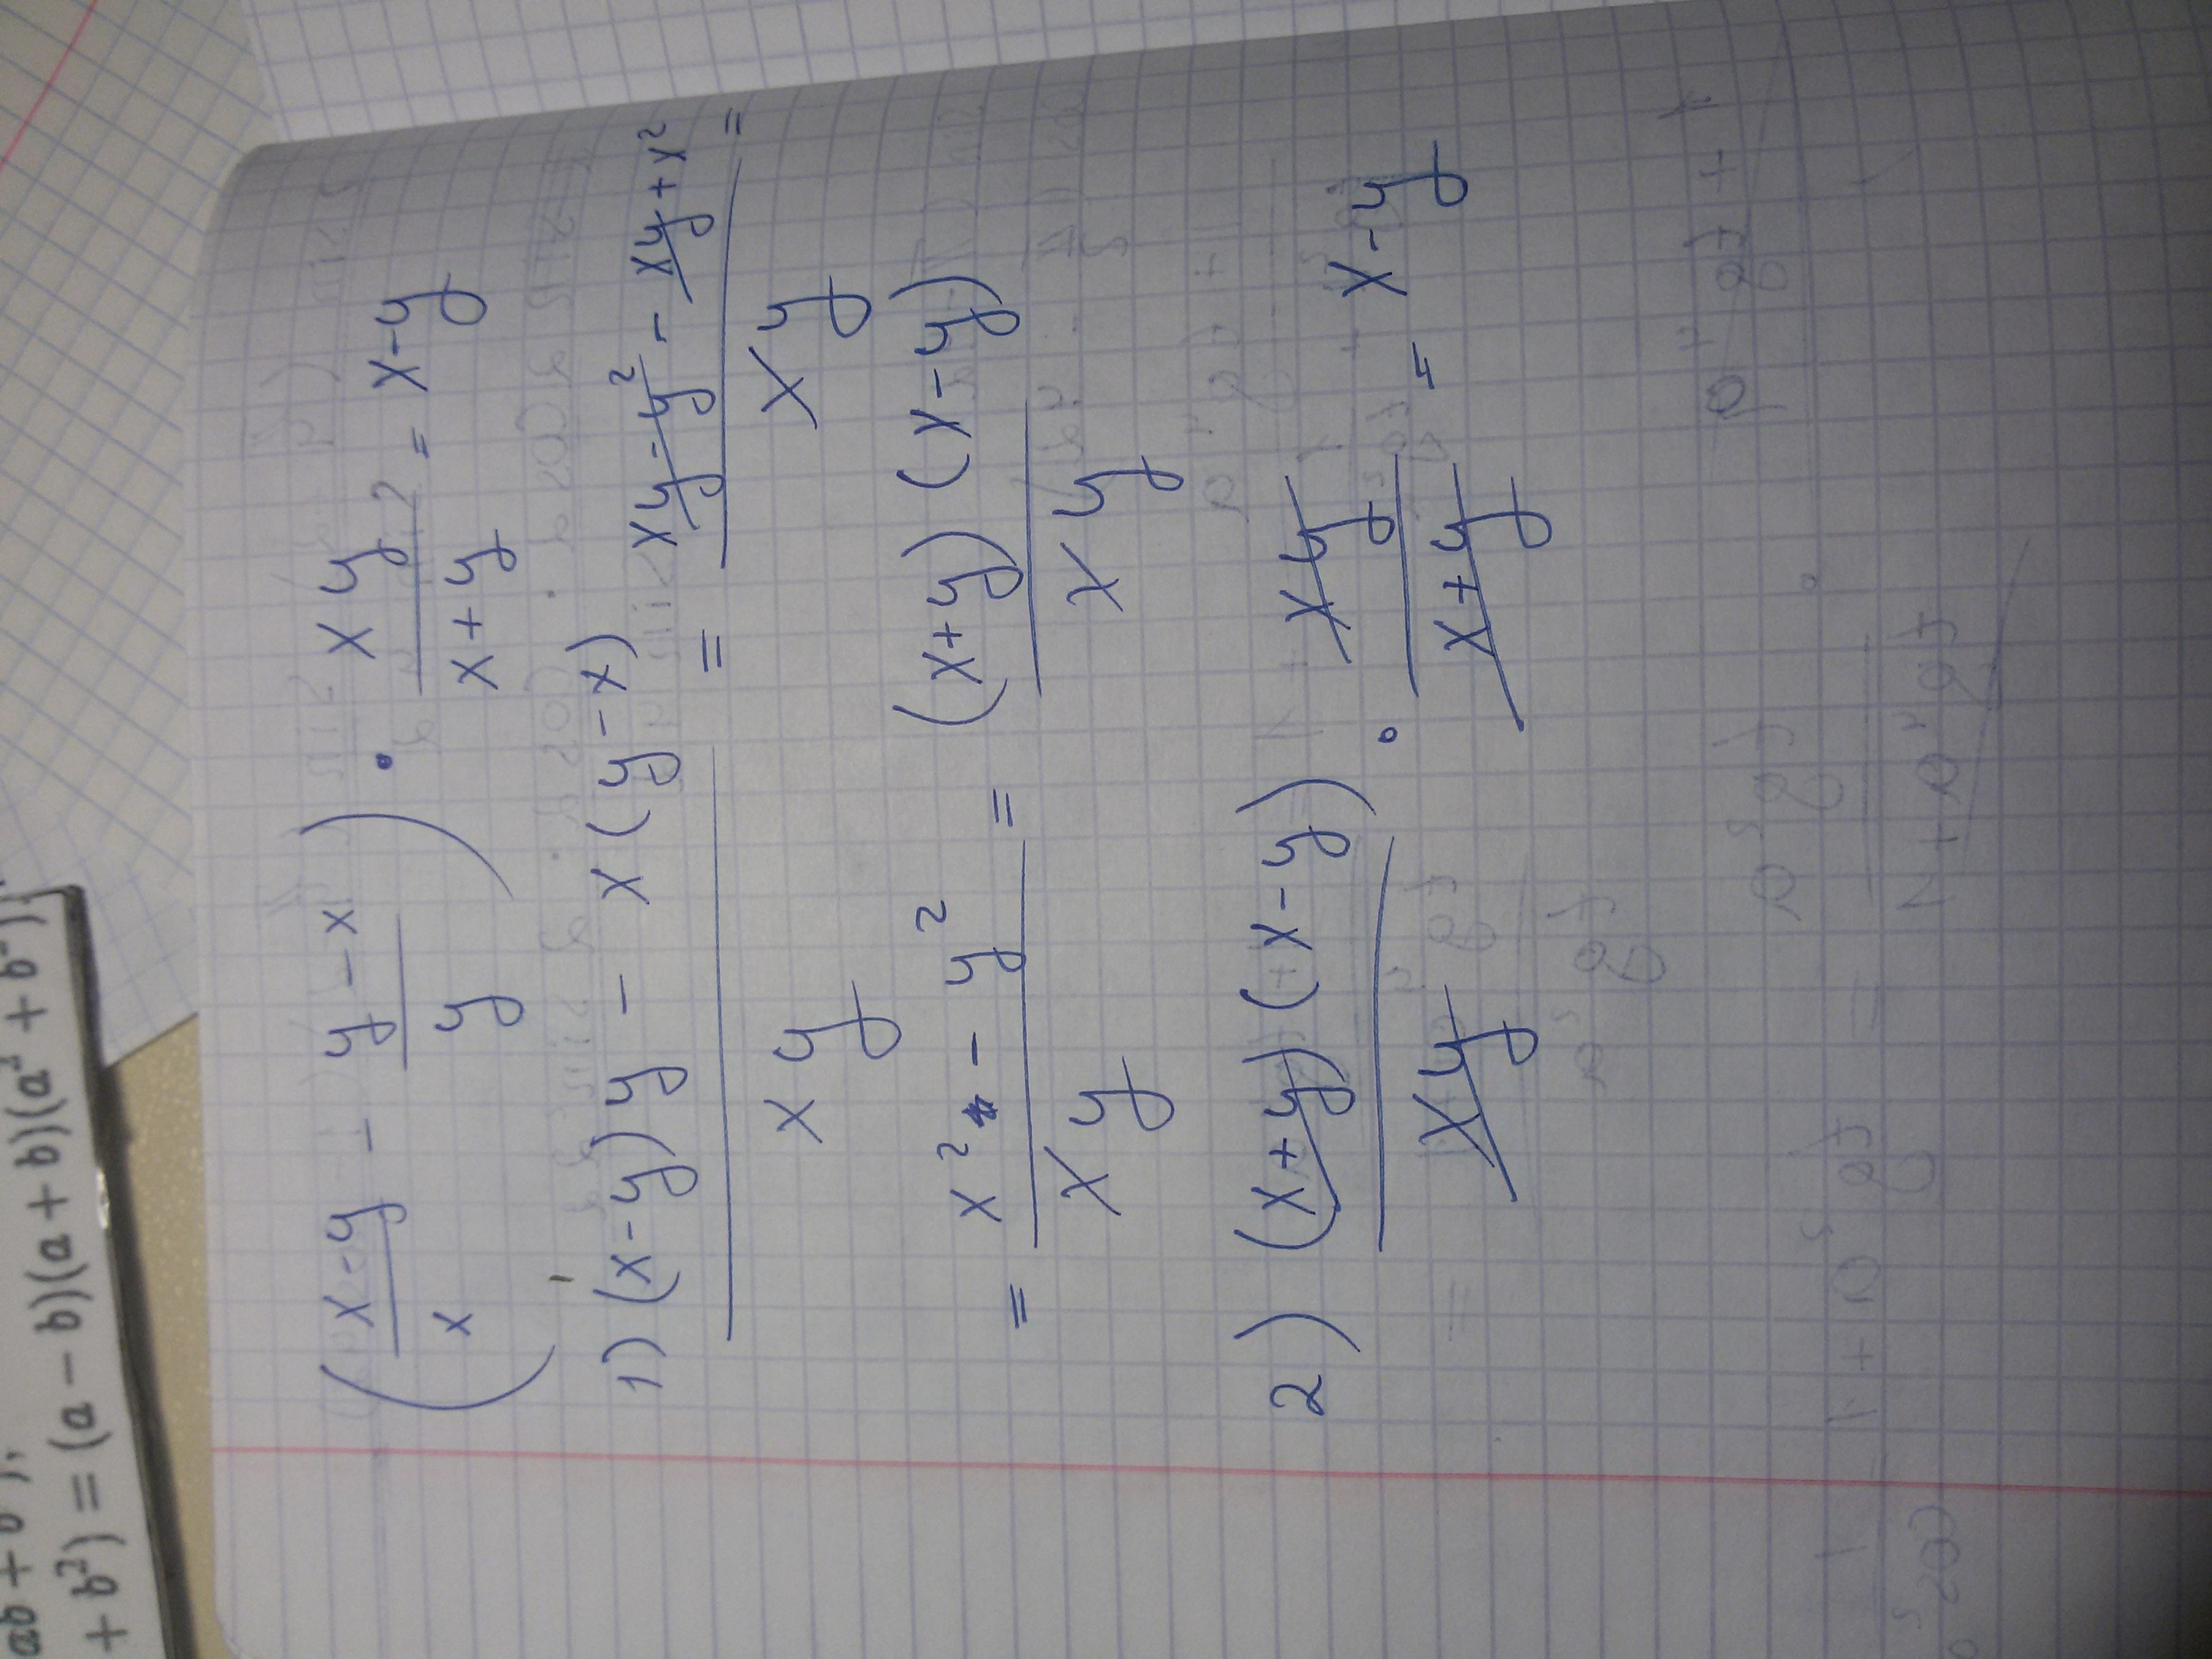 ab + b²),
+ b²) = (a − b)(a + b)(a² + b²),
( (x-y)/x - (y-x)/y ) · xy/(x+y) = x-y
1) ((x-y)y - x(y-x))/(xy) = (xy-y² - xy+x²)/(xy) =
= (x² - y²)/(xy) = ((x+y)(x-y))/(xy)
2) ((x+y)(x-y))/(xy) · (xy)/(x+y) = x-y